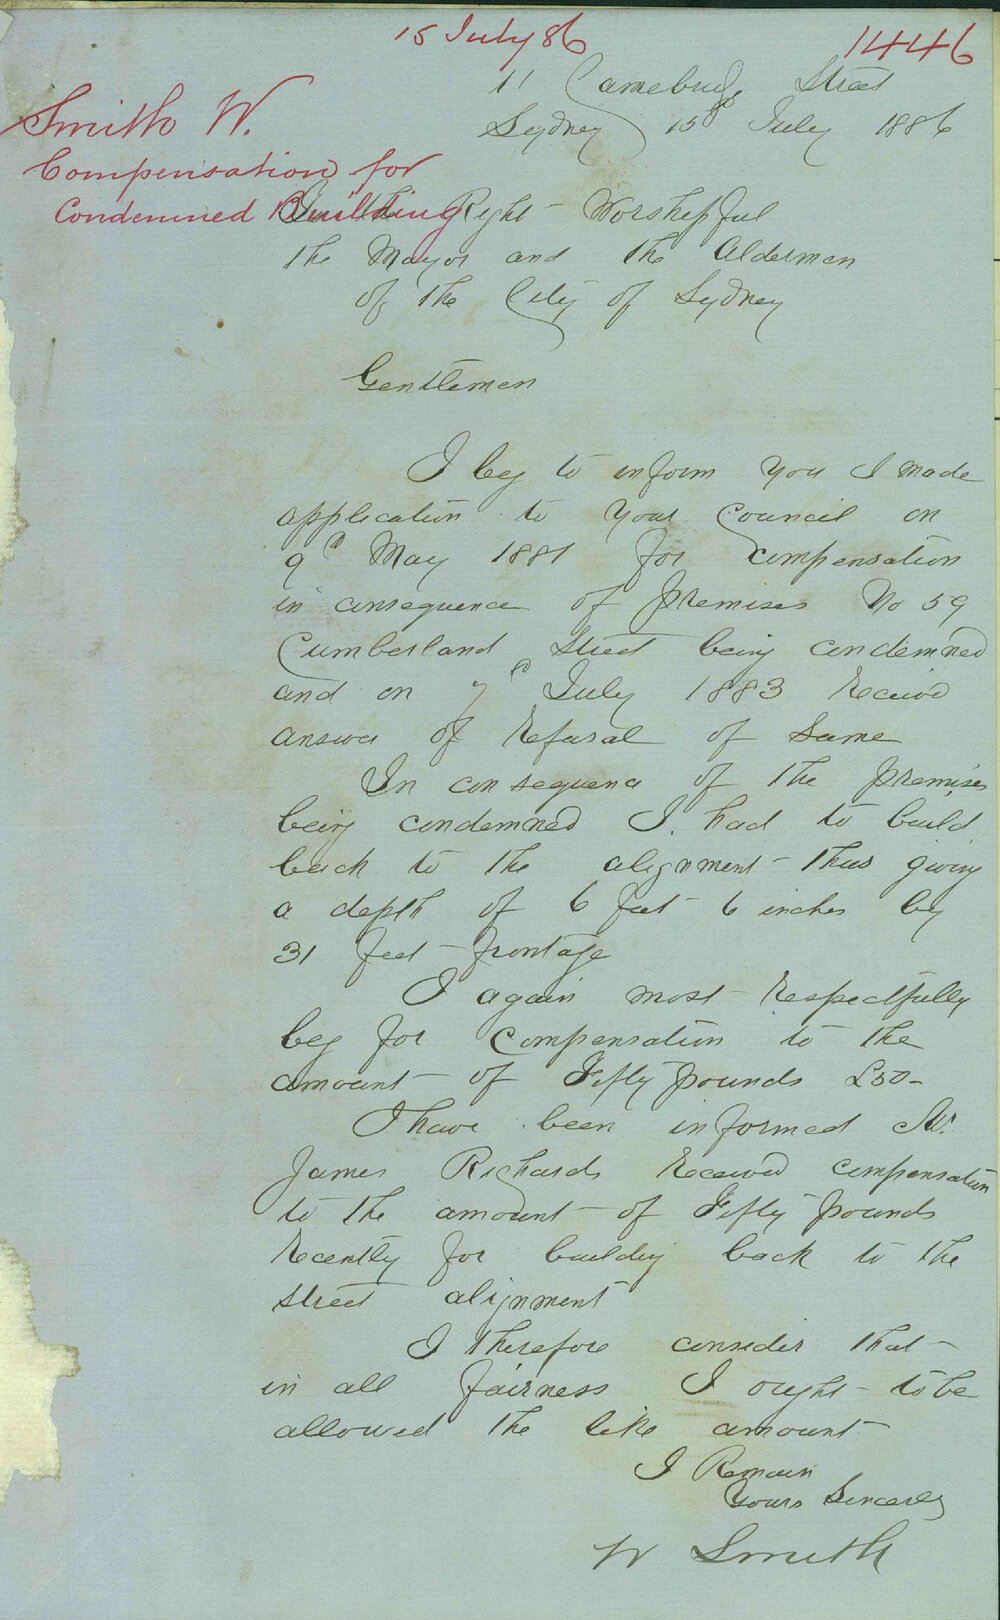 15 July 86
1446
Smith W.
Compensation for
Condemned Building
11 Street
Sydney 15th July 1886
Right Worshipful
the Mayor and the Aldermen
of the City of Sydney
Gentlemen
I beg to inform you I made
application to your Council on
9th May 1881 for compensation
in consequence of premises No 59
Cumberland Street being condemned
and on 7th July 1883 Receive
answer of Refusal of Same
In consequence of the premises
being condemned I had to build
back to the alignment thus giving
a depth of 6 feet 6 inches by
31 feet frontage
I again most Respectfully
beg for Compensation to the
amount of Fifty pounds £50-
I have been informed Mr.
James Richards Received compensation
to the amount of Fifty pounds
Recently for building back to the
Street alignment
I therefore consider that
in all fairness I ought to be
allowed the like amount
I Remain
Yours Sincerely
W Smith